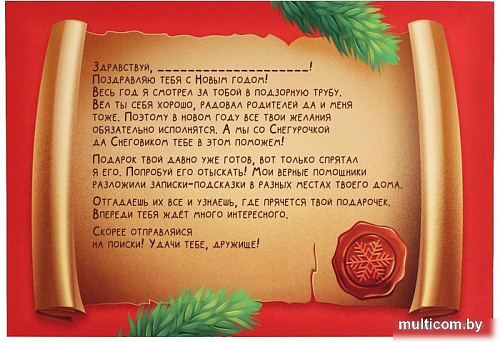 Здравствуй, ______________________!
Поздравляю тебя с Новым годом!
Весь год я смотрел за тобой в подзорную трубу.
Вел ты себя хорошо, радовал родителей да и меня
тоже. Поэтому в новом году все твои желания
обязательно исполнятся. А мы со Снегурочкой
да Снеговиком тебе в этом поможем!
Подарок твой давно уже готов, вот только спрятал
я его. Попробуй его отыскать! Мои верные помощники
разложили записки-подсказки в разных местах твоего дома.
Отгадаешь их все и узнаешь, где прячется твой подарочек.
Впереди тебя ждёт много интересного.
Скорее отправляйся
на поиски! Удачи тебе, дружище!
multicom.by